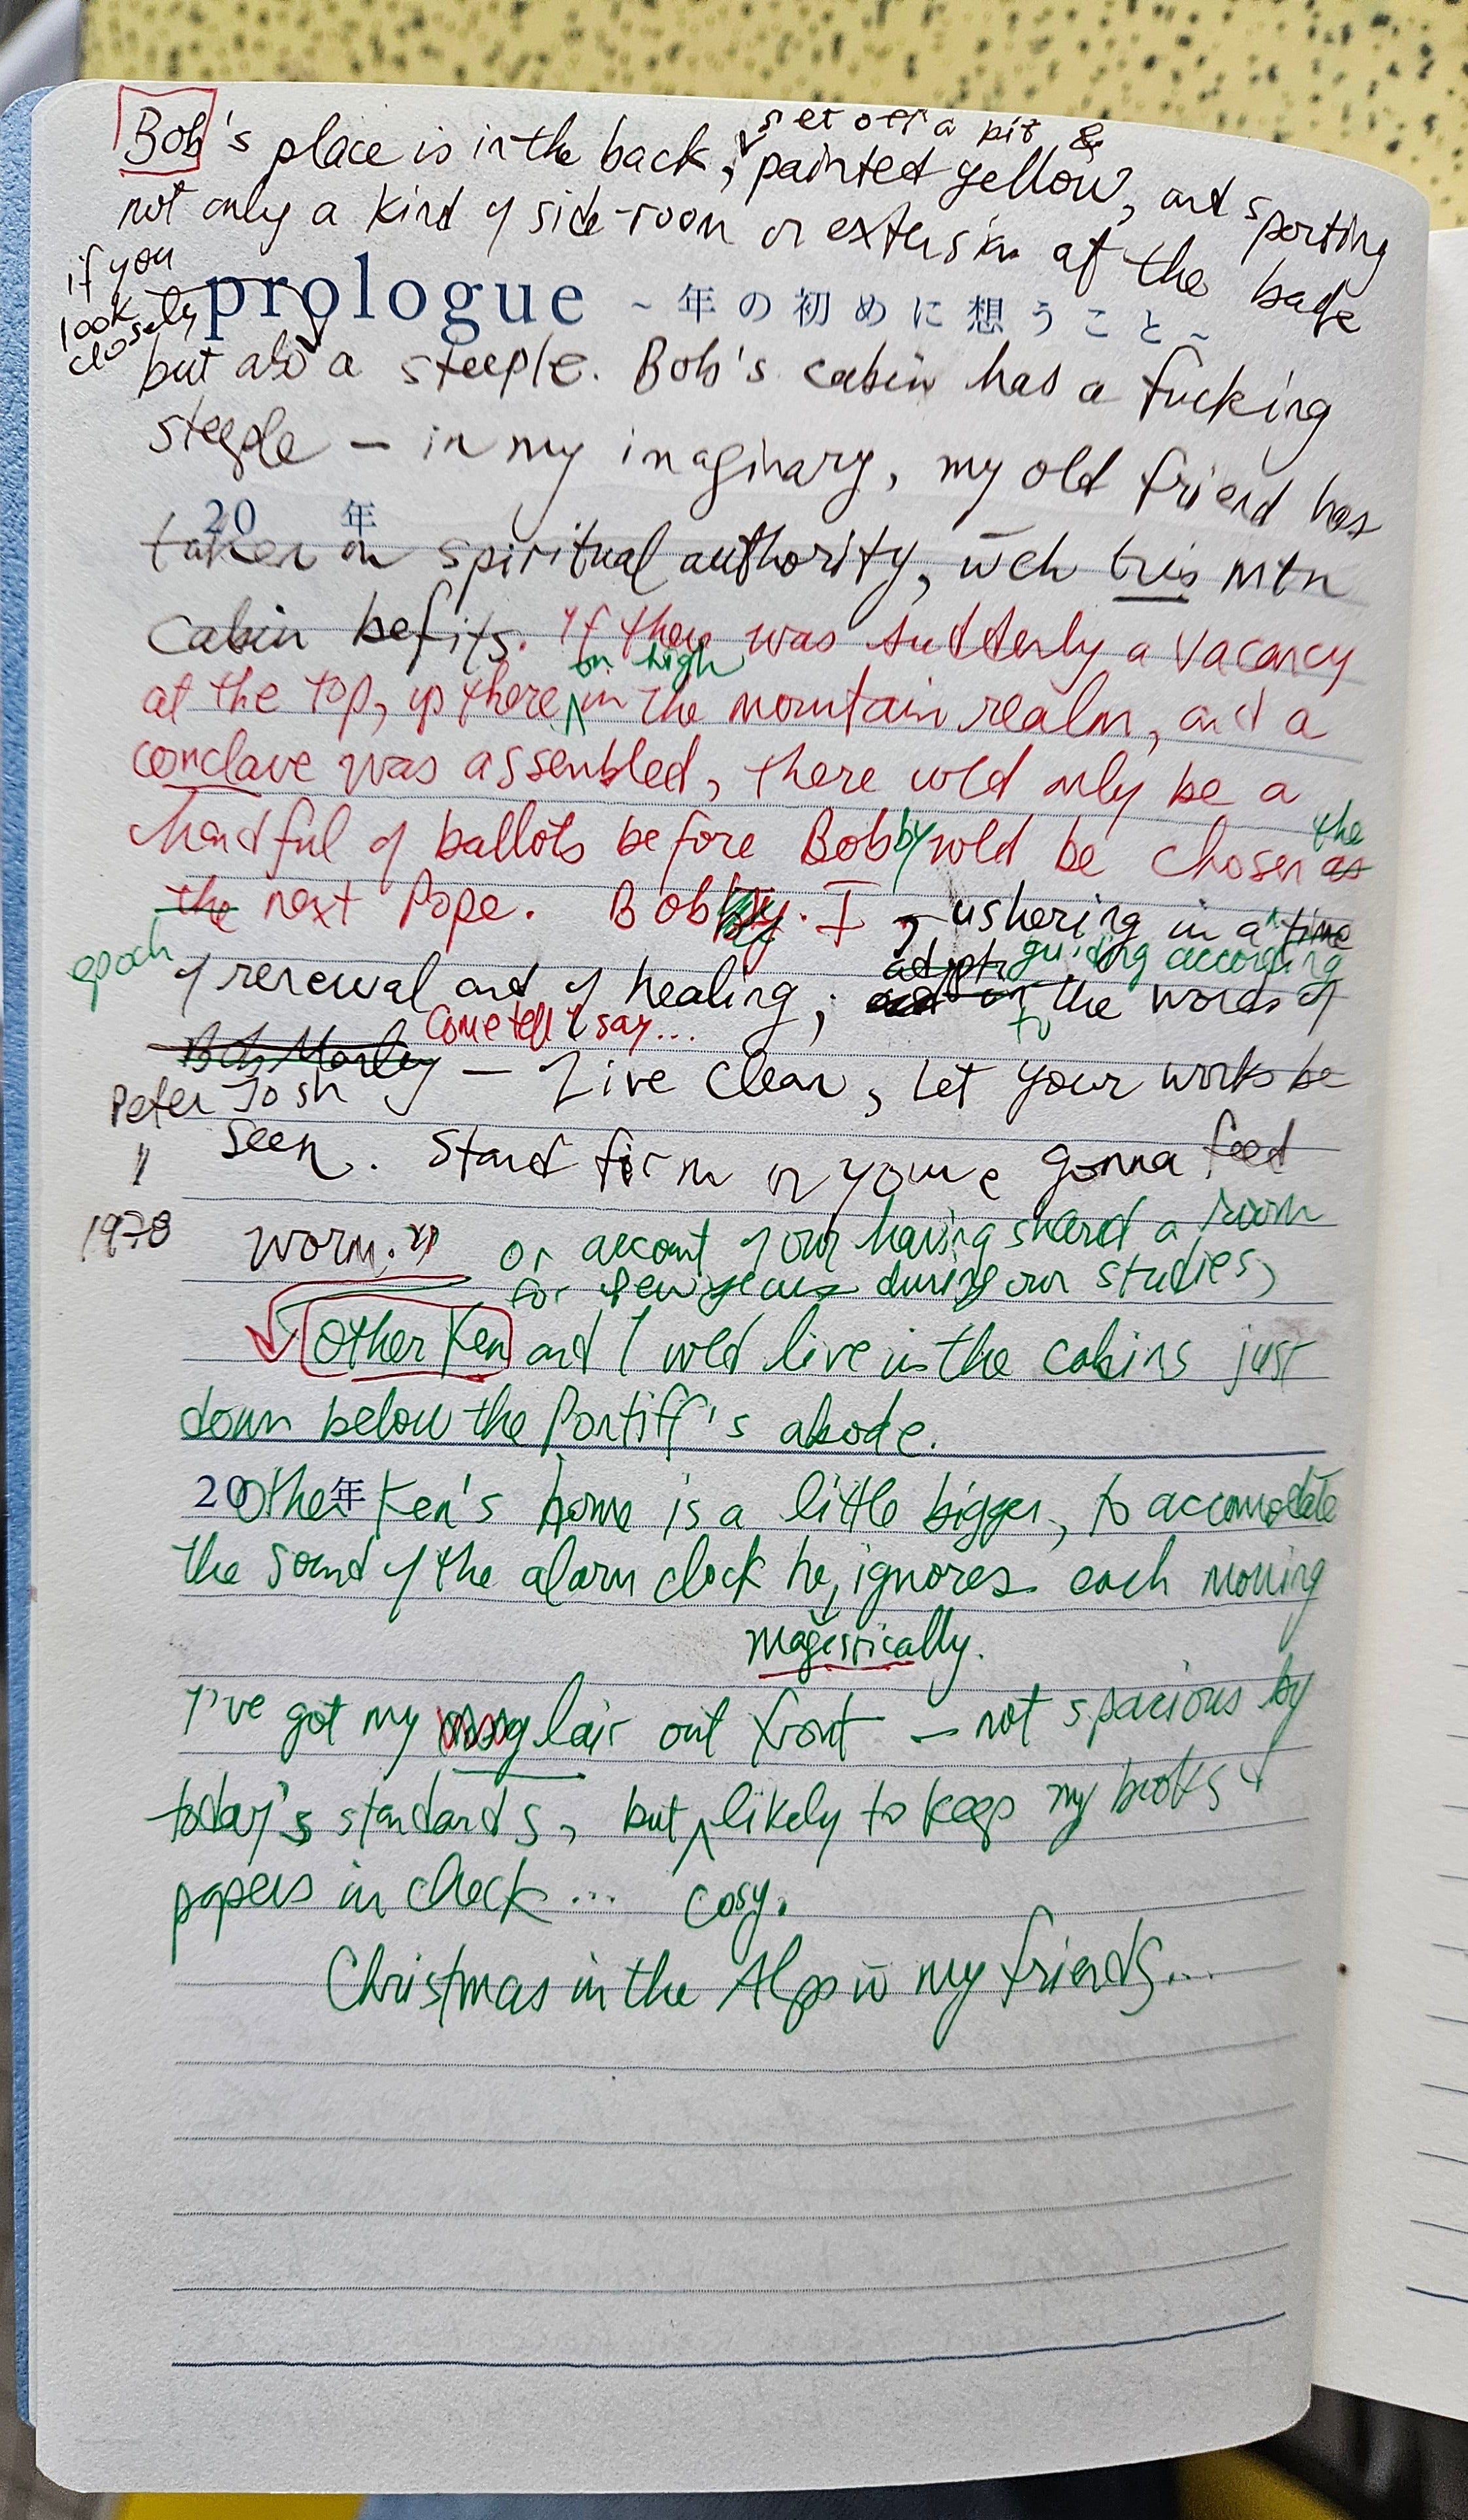 set off a bit &
Bob's place is in the back, painted yellow, and sporting
not only a kind of side-room or extension at the back
if you
look
closely
prologue ~年の初めに想うこと~
but also a steeple. Bob's cabin has a fucking
steeple – in my imaginary, my old friend has
20 年
taken on spiritual authority, wch this mtn
cabin befits. If there was suddenly a vacancy
on high
at the top, up there in the mountain realm, and a
conclave was assembled, there wold only be a
handful of ballots before Bobby wold be chosen as
the
the next Pope. Bobby. I, ushering in a time
epoch
guiding according
of renewal and of healing; the words of
to
Come tell I say...
Bob Marley – Live clean, Let your works be
Peter Tosh
seen. Stand firm or you're gonna feed
"
1978
worm.” on account of our having shared a room
for few years during our studies,
Other Ken and I wold live in the cabins just
down below the Pontiff's abode.
20 年
Other Ken's home is a little bigger, to accomodate
the sound of the alarm clock he, ignores each morning
magestically.
I've got my lair out front – not spacious by
today's standards, but likely to keep my books &
papers in check... cosy.
Christmas in the Alps w̄ my friends...